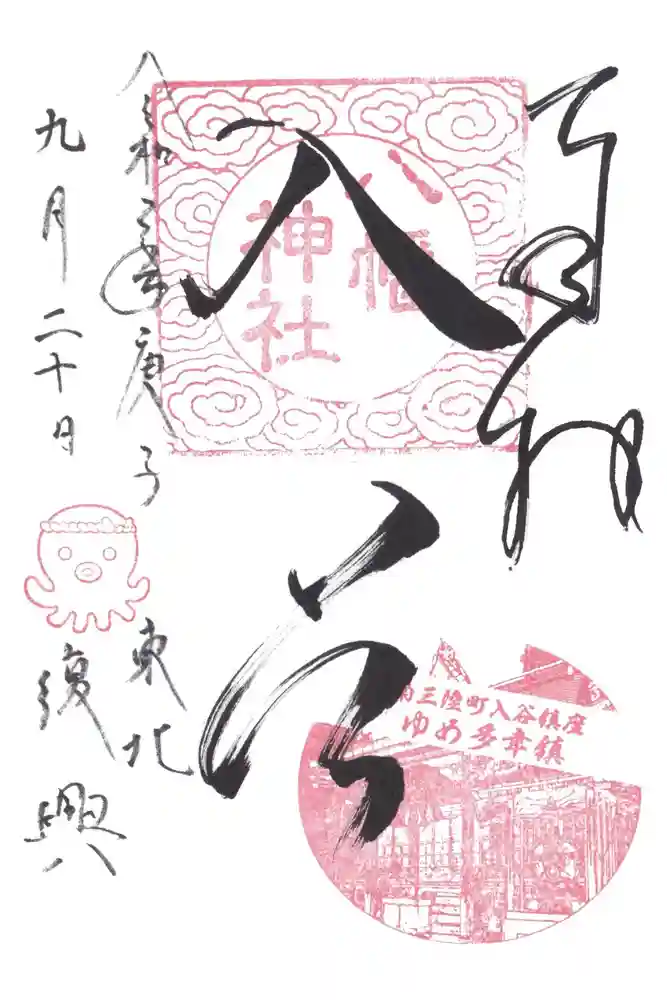 奉拝
入谷
八幡
神社
令和二年庚子
九月二十日
東北
復興
南三陸町入谷鎮座
ゆめ多幸鎮